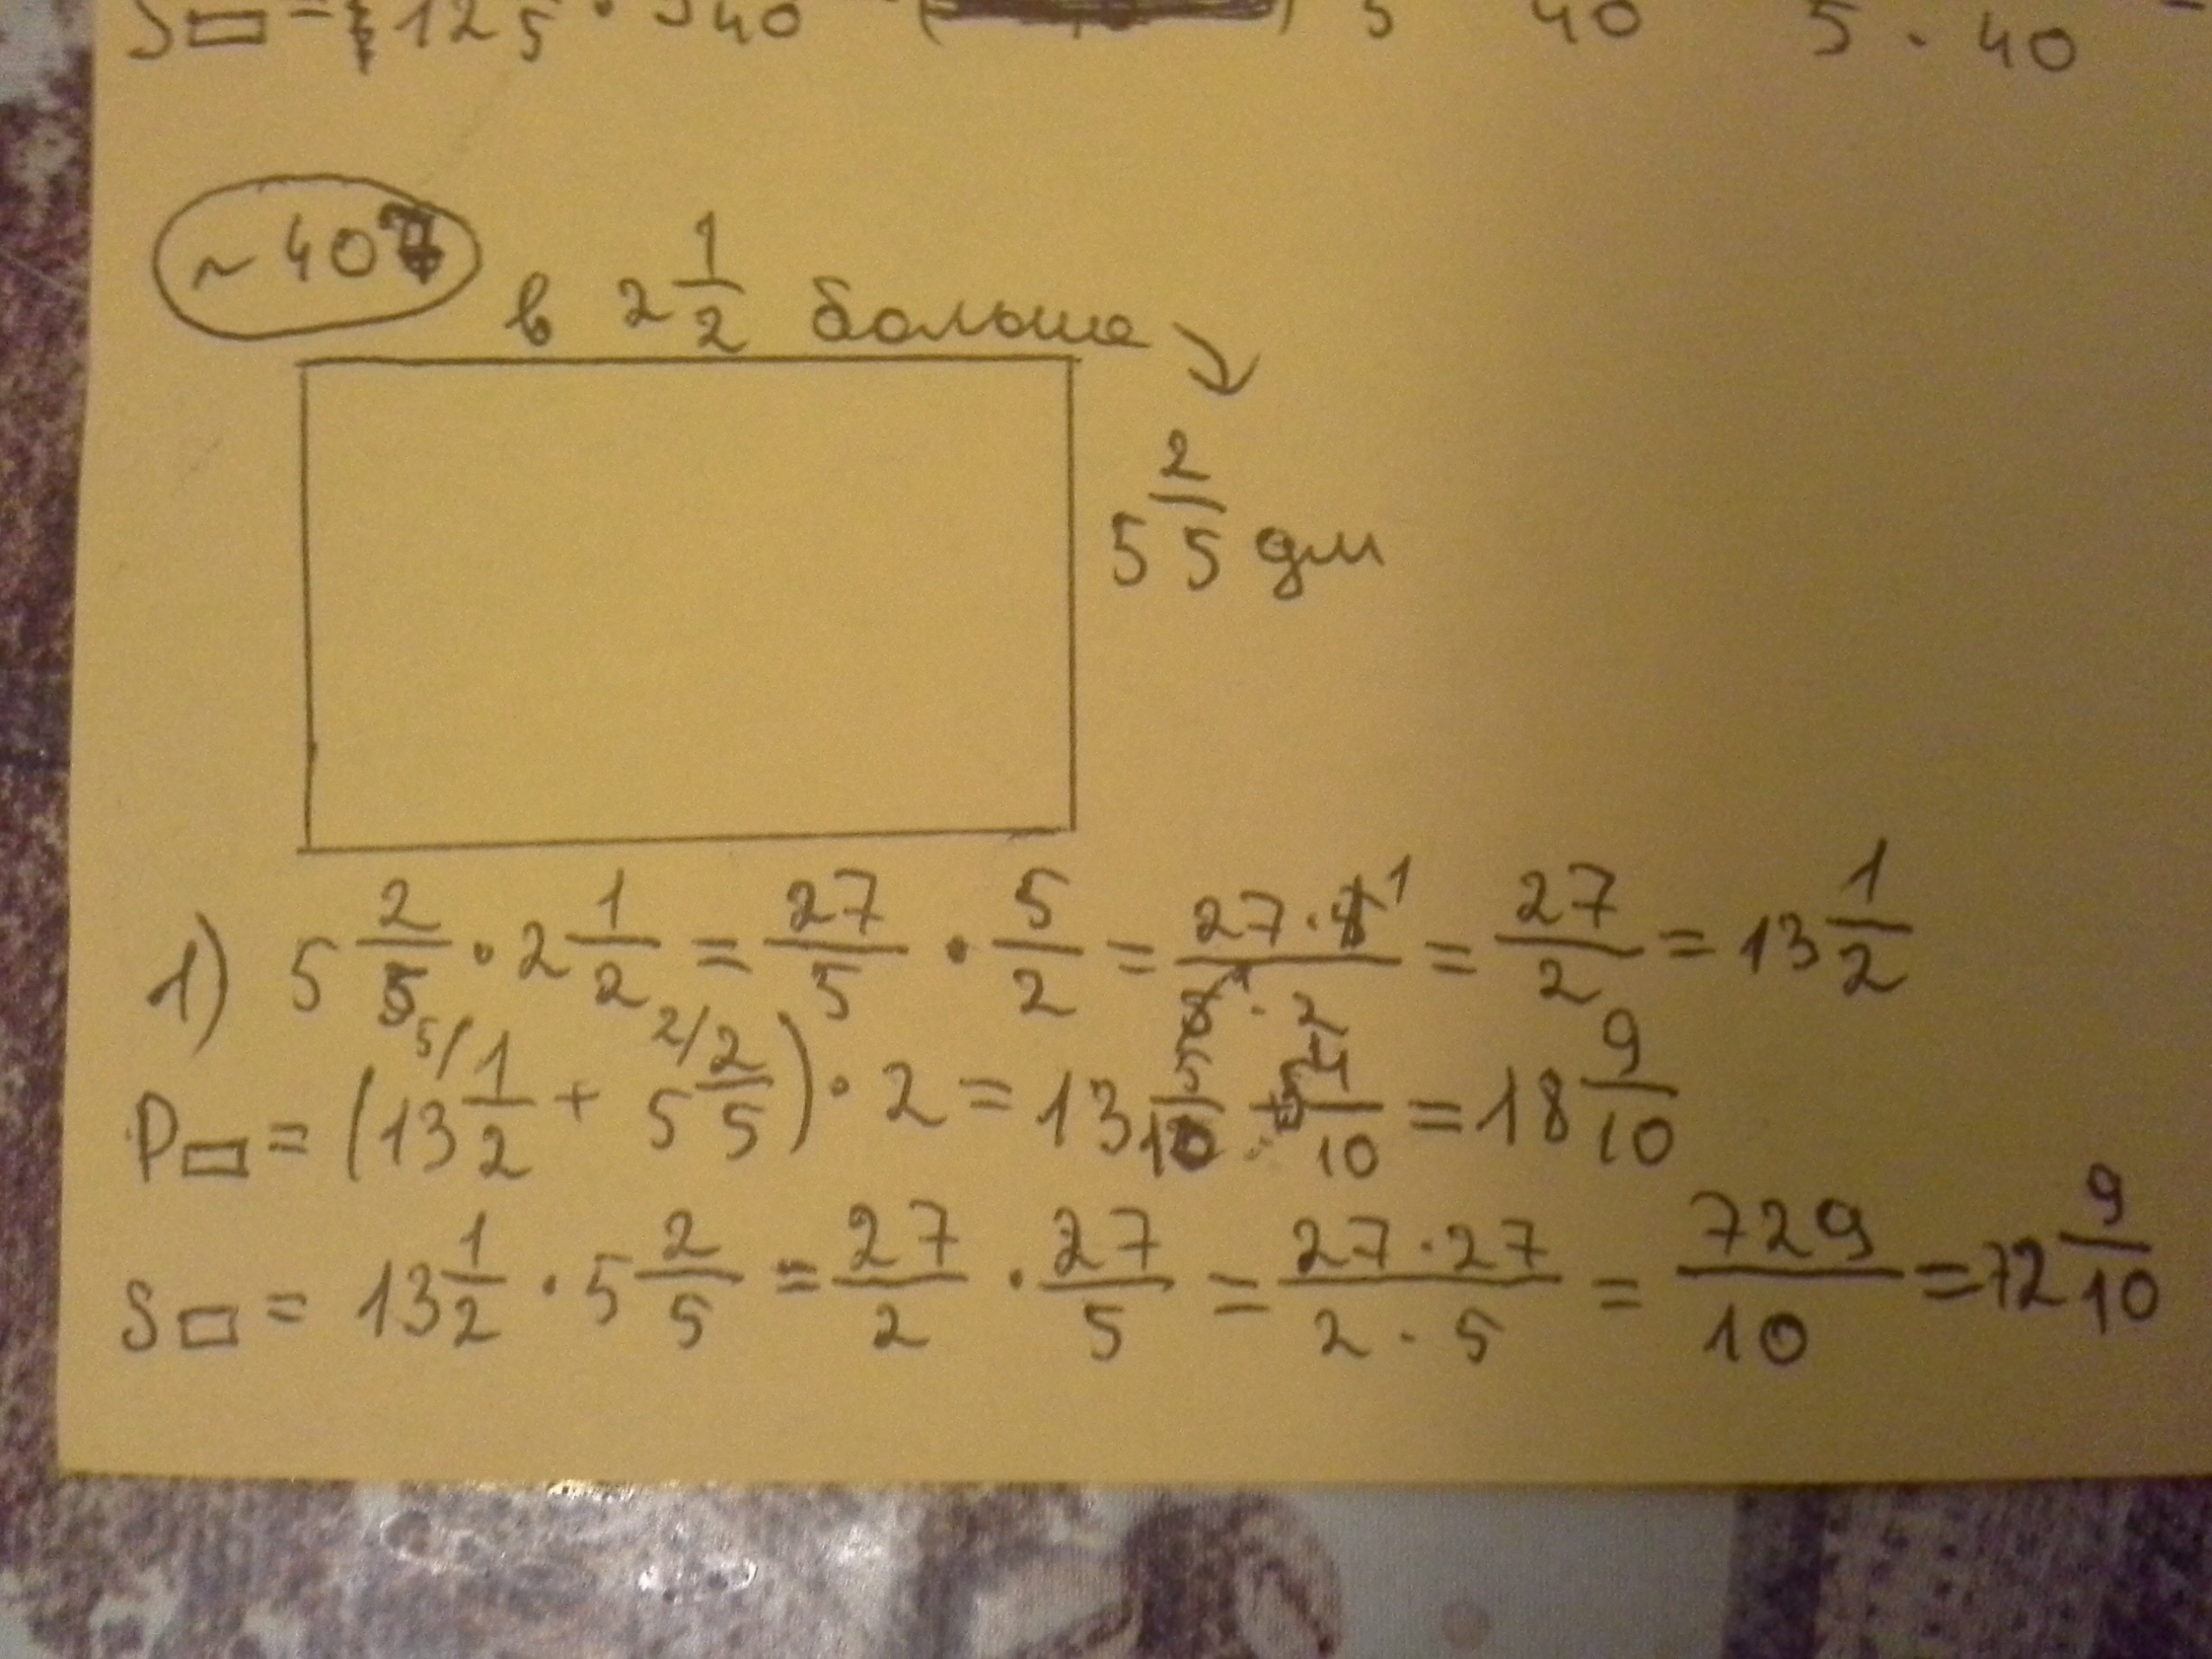 S▭ = 12 5 · 340 ( ) 5 40 5 · 40
~ 407
в 2 1/2 больше ↘
5 2/5 дм
1) 5 2/5 · 2 1/2 = 27/5 · 5/2 = 27 · 1/ · 2 = 27/2 = 13 1/2
P▭ = (13 5/ 1/2 + 5 2/ 2/5) · 2 = 13 5/10 + 5 4/10 = 18 9/10
S▭ = 13 1/2 · 5 2/5 = 27/2 · 27/5 = 27 · 27/2 · 5 = 729/10 = 72 9/10